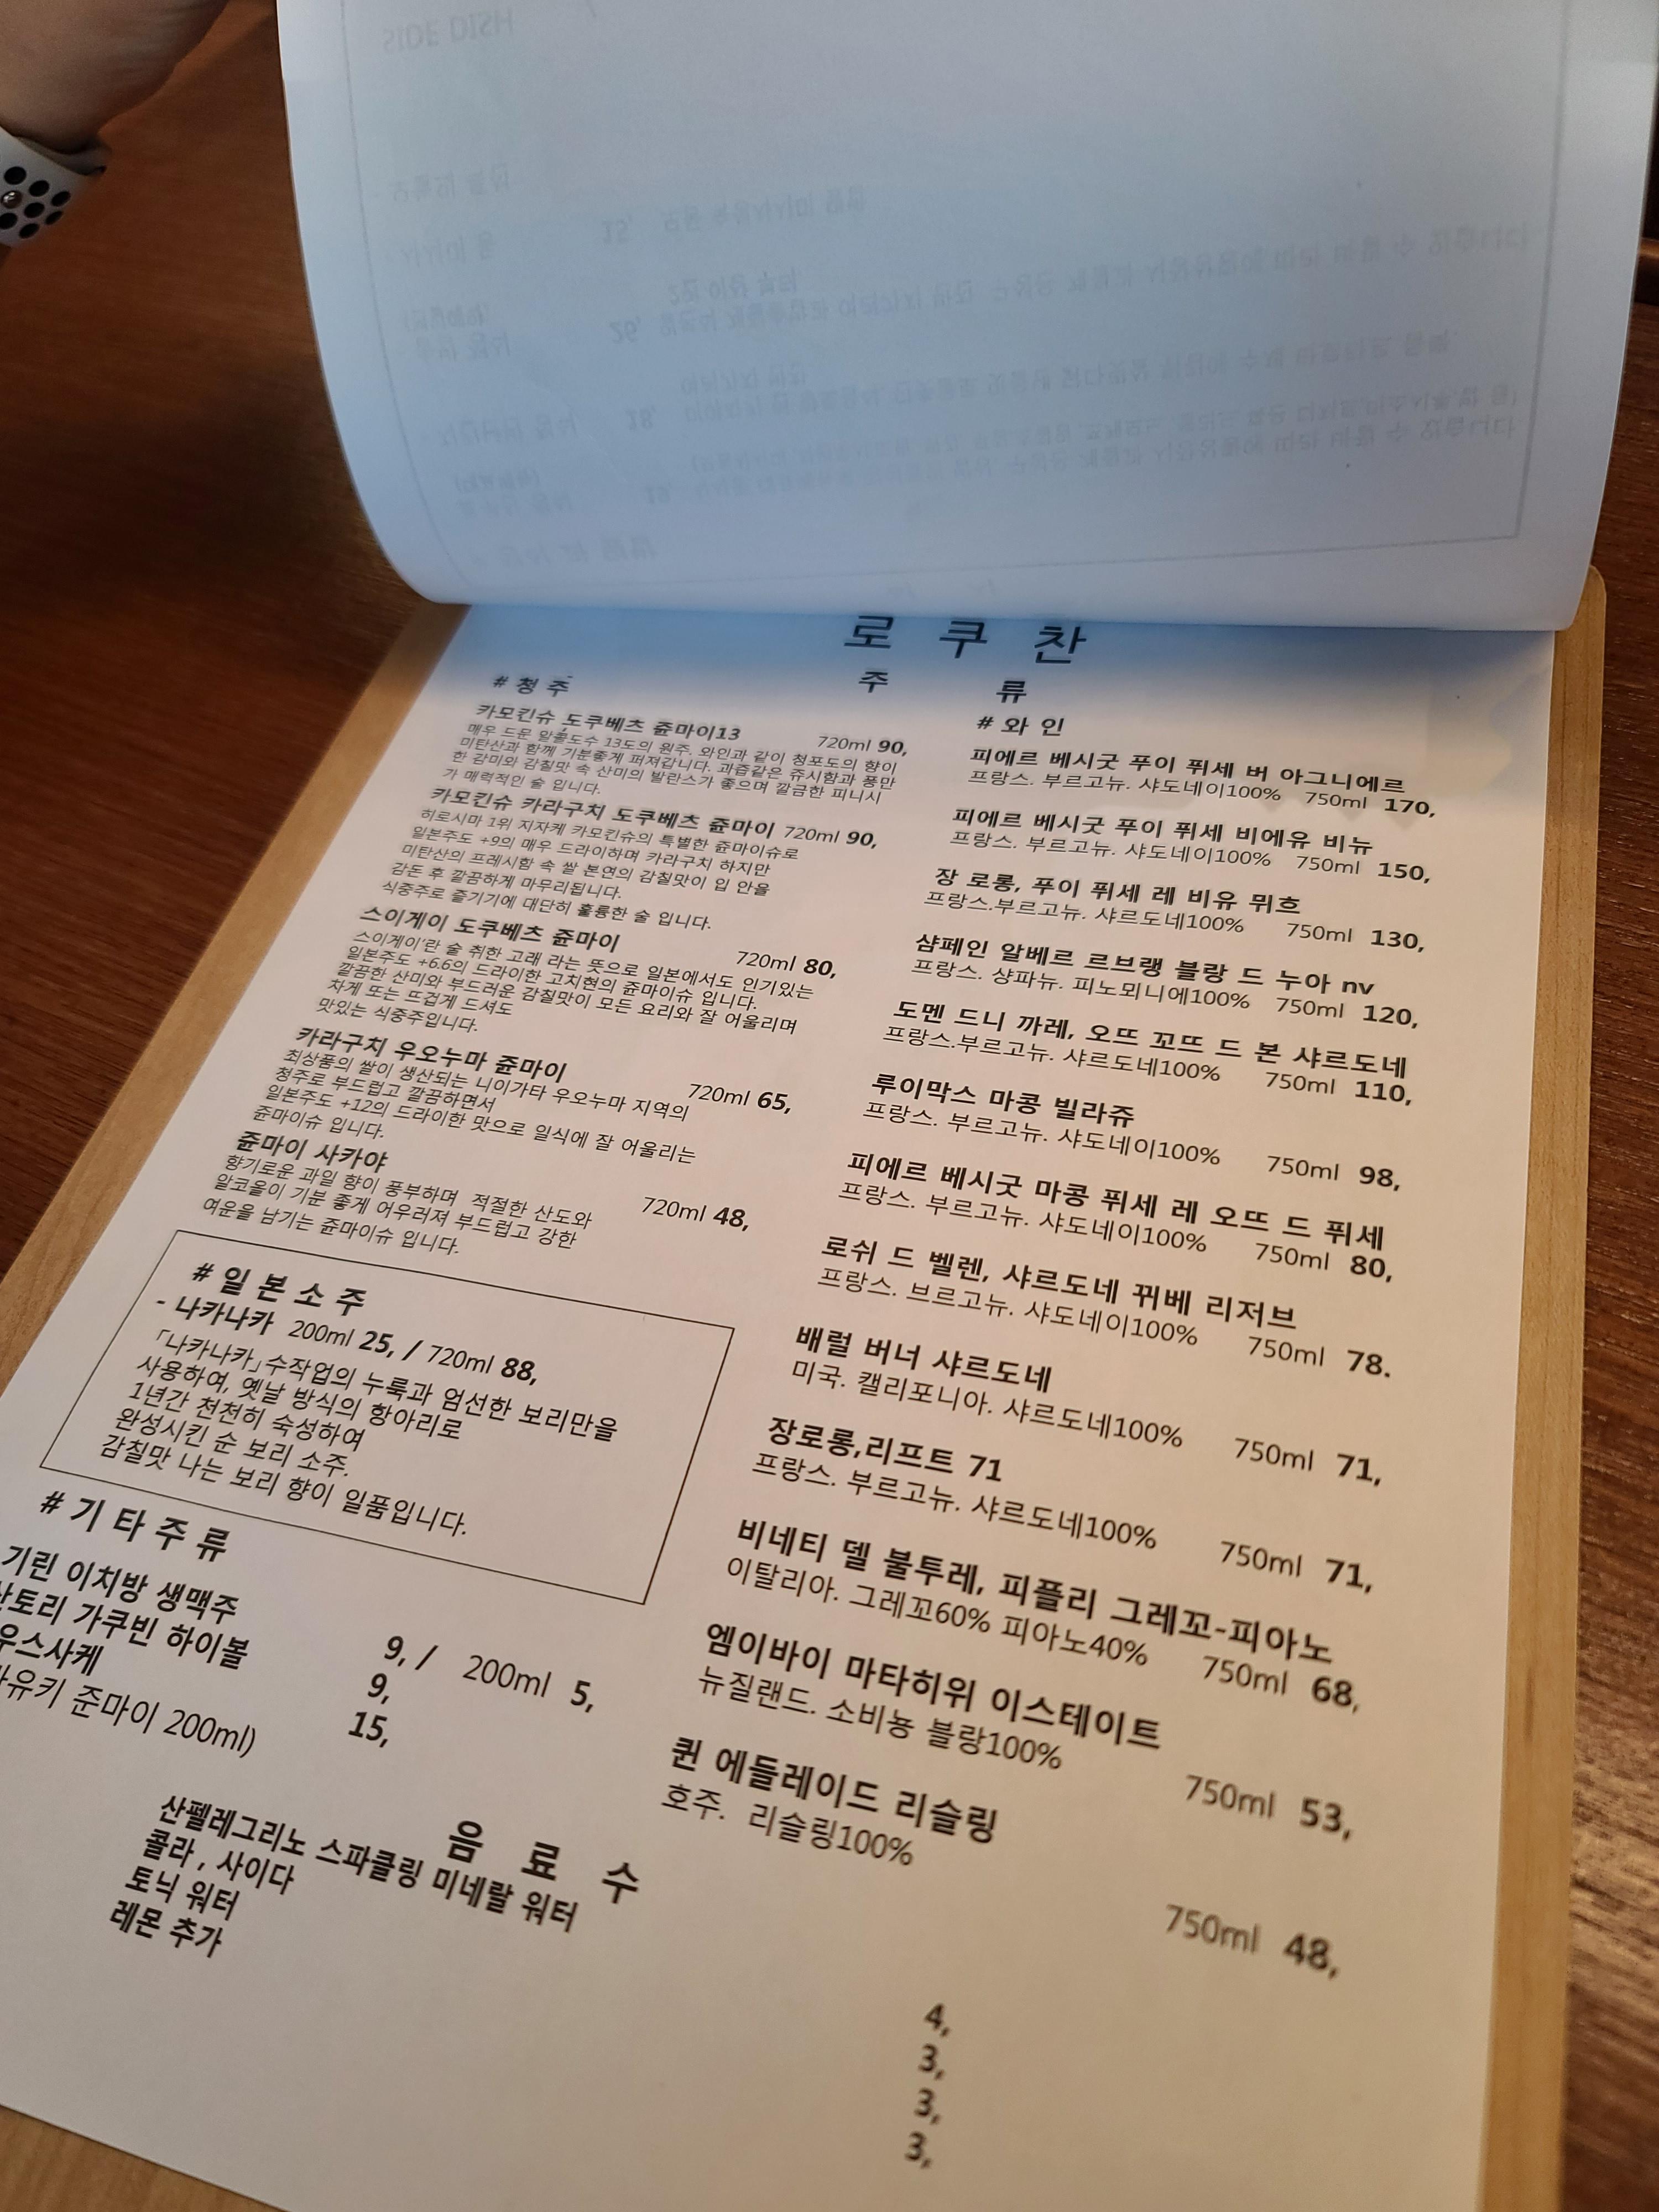 SIDE DISH
로 쿠 찬
주 류
# 청 주
카모킨슈 도쿠베츠 쥰마이13 720ml 90,
매우 드문 알콜도수 13도의 원주. 와인과 같이 청포도의 향이
미탄산과 함께 기분좋게 퍼져갑니다. 과즙같은 쥬시함과 풍만
한 감미와 감칠맛 속 산미의 발란스가 좋으며 깔금한 피니시
가 매력적인 술 입니다.
카모킨슈 카라구치 도쿠베츠 쥰마이 720ml 90,
히로시마 1위 지자케 카모킨슈의 특별한 쥰마이슈로
일본주도 +9의 매우 드라이하며 카라구치 하지만
미탄산의 프레시함 속 쌀 본연의 감칠맛이 입 안을
감돈 후 깔끔하게 마무리됩니다.
식중주로 즐기기에 대단히 훌륭한 술 입니다.
스이게이 도쿠베츠 쥰마이 720ml 80,
스이게이'란 술 취한 고래 라는 뜻으로 일본에서도 인기있는
일본주도 +6.6의 드라이한 고치현의 쥰마이슈 입니다.
깔끔한 산미와 부드러운 감칠맛이 모든 요리와 잘 어울리며
차게 또는 뜨겁게 드셔도
맛있는 식중주입니다.
카라구치 우오누마 쥰마이 720ml 65,
최상품의 쌀이 생산되는 니이가타 우오누마 지역의
청주로 부드럽고 깔끔하면서
일본주도 +12의 드라이한 맛으로 일식에 잘 어울리는
쥰마이슈 입니다.
쥰마이 사카야 720ml 48,
향기로운 과일 향이 풍부하며 적절한 산도와
알코올이 기분 좋게 어우러져 부드럽고 강한
여운을 남기는 쥰마이슈 입니다.
# 일 본 소 주
- 나카나카 200ml 25, / 720ml 88,
「나카나카」수작업의 누룩과 엄선한 보리만을
사용하여, 옛날 방식의 항아리로
1년간 천천히 숙성하여
완성시킨 순 보리 소주.
감칠맛 나는 보리 향이 일품입니다.
# 기 타 주 류
기린 이치방 생맥주 9, / 200ml 5,
산토리 가쿠빈 하이볼 9,
우스사케 15,
유키 준마이 200ml)
# 와 인
피에르 베시굿 푸이 퓌세 버 아그니에르
프랑스. 부르고뉴. 샤도네이100% 750ml 170,
피에르 베시굿 푸이 퓌세 비에유 비뉴
프랑스. 부르고뉴. 샤도네이100% 750ml 150,
장 로롱, 푸이 퓌세 레 비유 뮈흐
프랑스.부르고뉴. 샤르도네100% 750ml 130,
샴페인 알베르 르브랭 블랑 드 누아 nv
프랑스. 샹파뉴. 피노뫼니에100% 750ml 120,
도멘 드니 까레, 오뜨 꼬뜨 드 본 샤르도네
프랑스.부르고뉴. 샤르도네100% 750ml 110,
루이막스 마콩 빌라쥬
프랑스. 부르고뉴. 샤도네이100% 750ml 98,
피에르 베시굿 마콩 퓌세 레 오뜨 드 퓌세
프랑스. 부르고뉴. 샤도네이100% 750ml 80,
로쉬 드 벨렌, 샤르도네 뀌베 리저브
프랑스. 브르고뉴. 샤도네이100% 750ml 78.
배럴 버너 샤르도네
미국. 캘리포니아. 샤르도네100% 750ml 71,
장로롱,리프트 71
프랑스. 부르고뉴. 샤르도네100% 750ml 71,
비네티 델 불투레, 피플리 그레꼬-피아노
이탈리아. 그레꼬60% 피아노40% 750ml 68,
엠이바이 마타히위 이스테이트
뉴질랜드. 소비뇽 블랑100% 750ml 53,
퀸 에들레이드 리슬링
호주. 리슬링100% 750ml 48,
음 료 수
산펠레그리노 스파클링 미네랄 워터 4,
콜라 , 사이다 3,
토닉 워터 3,
레몬 추가 3,